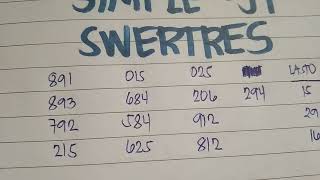 SIMPLE ST
SWERTRES
891 015 025 LASTO
893 684 206 294 15
792 584 912 29
215 625 812 16